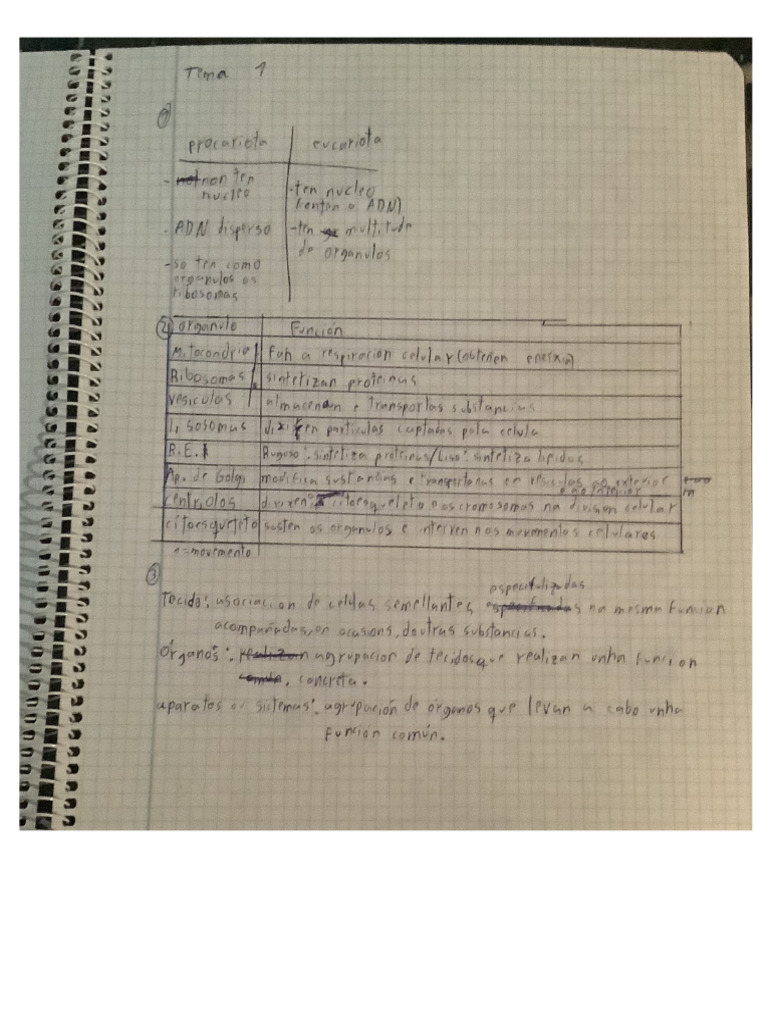 Tema 1
1
procariota eucariota
- non ten
nucleo
- ADN disperso
- so ten como
organulos os
ribosomas
- ten nucleo
(conten o ADN)
- ten multitude
de organulos
2 organulo Función
Mitocondria Fan a respiracion celular (obteñen enerxia)
Ribosomas sintetizan proteinas
vesiculas almacenan e transportas substancias
Lisosomas dixiren particulas captadas pola celula
R.E. Rugoso: sintetiza proteinas/Liso: sintetiza lipidos
Ap. de Golgi modifica sustancias e transportanas en vesiculas ao exterior
e ao interior
centriolos dirixen o citoesqueleto e os cromosomas na division celular
citoesqueleto susten os organulos e interven nos movementos celulares
e=movemento
3
especializadas
Tecido: asociacion de celulas semellantes na mesma funcion
acompañadas, en ocasions, doutras substancias.
Órganos: agrupacion de tecidos que realizan unha funcion
concreta.
aparatos ou sistemas: agrupación de órganos que levan a cabo unha
función común.